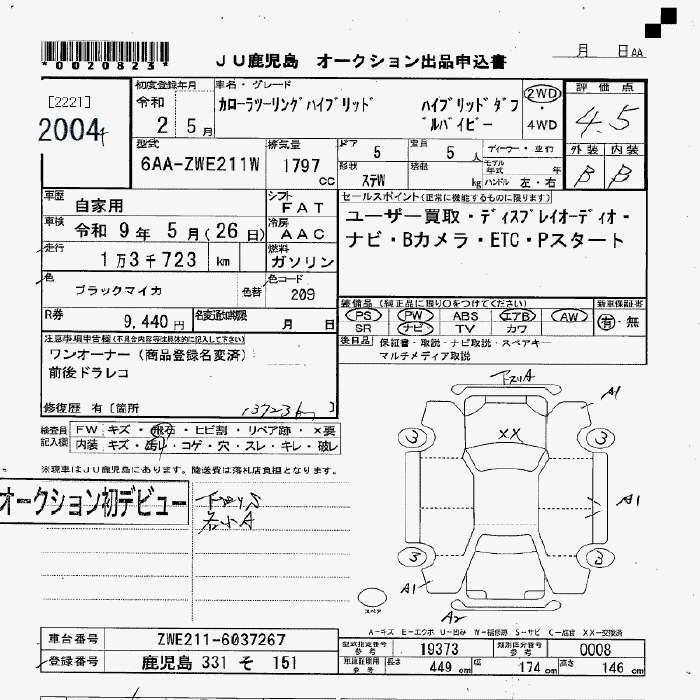 *0020823*
JU鹿児島 オークション出品申込書
月 日AA
[2221]
2004
初度登録年月
令和
2 5月
車名・グレード
カローラツーリングハイブリッド
ハイブリッドダブ
ルバイビー
2WD
・
4WD
評価点
4.5
型式
6AA-ZWE211W
排気量
1797
cc
ドア 5
定員 5人
形状 ステW
積載 kg
ディーラー・並行
モデル年式 年
ハンドル 左・右
外装 内装
B B
車歴
自家用
シフト
FAT
車検
令和 9年 5月(26日)
冷房
AAC
走行
1万3千723 km
燃料
ガソリン
セールスポイント(正常に機能するものに限ります)
ユーザー買取・ディスプレイオーディオ・
ナビ・Bカメラ・ETC・Pスタート
色
ブラックマイカ
色替
色コード
209
装備品(純正品に限り○をつけてください)
新車保証書
PS PW ABS エアB AW
SR ナビ TV カワ
有・無
R券
9,440円
名変通知期限
月 日
後日品
保証書・取説・ナビ取説・スペアキー
マルチメディア取説
注意事項申告欄(不具合内容等は具体的に記入して下さい)
ワンオーナー(商品登録名変済)
前後ドラレコ
修復歴 有〔箇所 〕
13723km
検査員
記入欄
FW キズ・飛石・ヒビ割・リペア跡・×要
内装 キズ・汚れ・コゲ・穴・スレ・キレ・破レ
※現車はJU鹿児島にあります。陸送費は落札店負担となります。
オークション初デビュー
各小A
A1
XX
3 3
A1
3
A1
スペア
A2
A-キズ E-エクボ U-凹み W-補修跡 S-サビ C-腐食 XX-交換済
車台番号
ZWE211-6037267
登録番号
鹿児島 331 そ 151
型式指定番号
参考
19373
類別区分番号
参考
0008
車庫証明用
参考
長さ
449 cm
幅
174 cm
高さ
146 cm